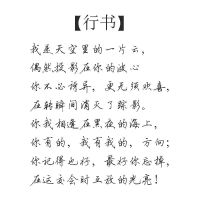 【行书】
我是天空里的一片云，
偶然投影在你的波心
你不必讶异，更无须欢喜，
在转瞬间消灭了踪影。
你我相逢在黑夜的海上，
你有的，我有我的，方向；
你记得也好，最好你忘掉，
在这交会时互放的光亮！